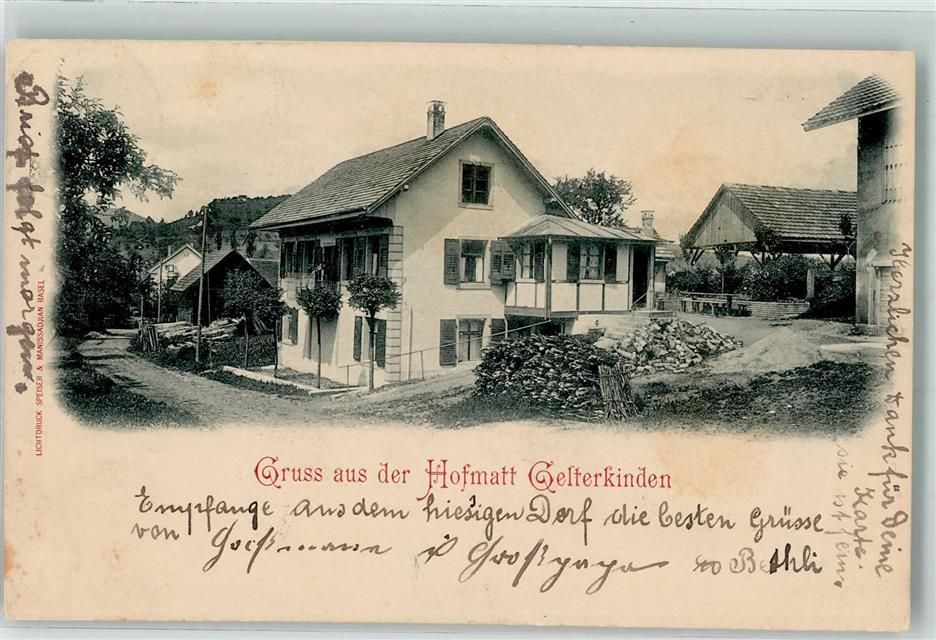 Gruss aus der Hofmatt Gelterkinden
Empfange aus dem hiesigen Dorf die besten Grüsse
von Großmama & Großpapa Bethli
Herzlichen Dank für Deine
Karte.
sie ist fein
folgt morgen
LICHTDRUCK SPEISER & MANISSADJIAN BASEL